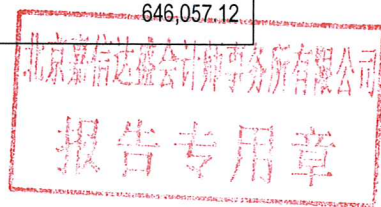 646,057.12
北京嘉信达盛会计师事务所有限公司
报告专用章